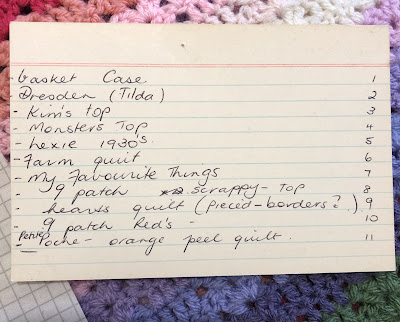 - Basket Case 1
Dresden (Tilda) 2
- Kim's top 3
- Monsters Top 4
- hexie 1930's. 5
- Farm quilt 6
- My Favourite Things 7
- 9 patch scrappy - top 8
- hearts quilt (pieced - borders?) 9
- 9 patch Red's - 10
- Poche - orange peel quilt. 11